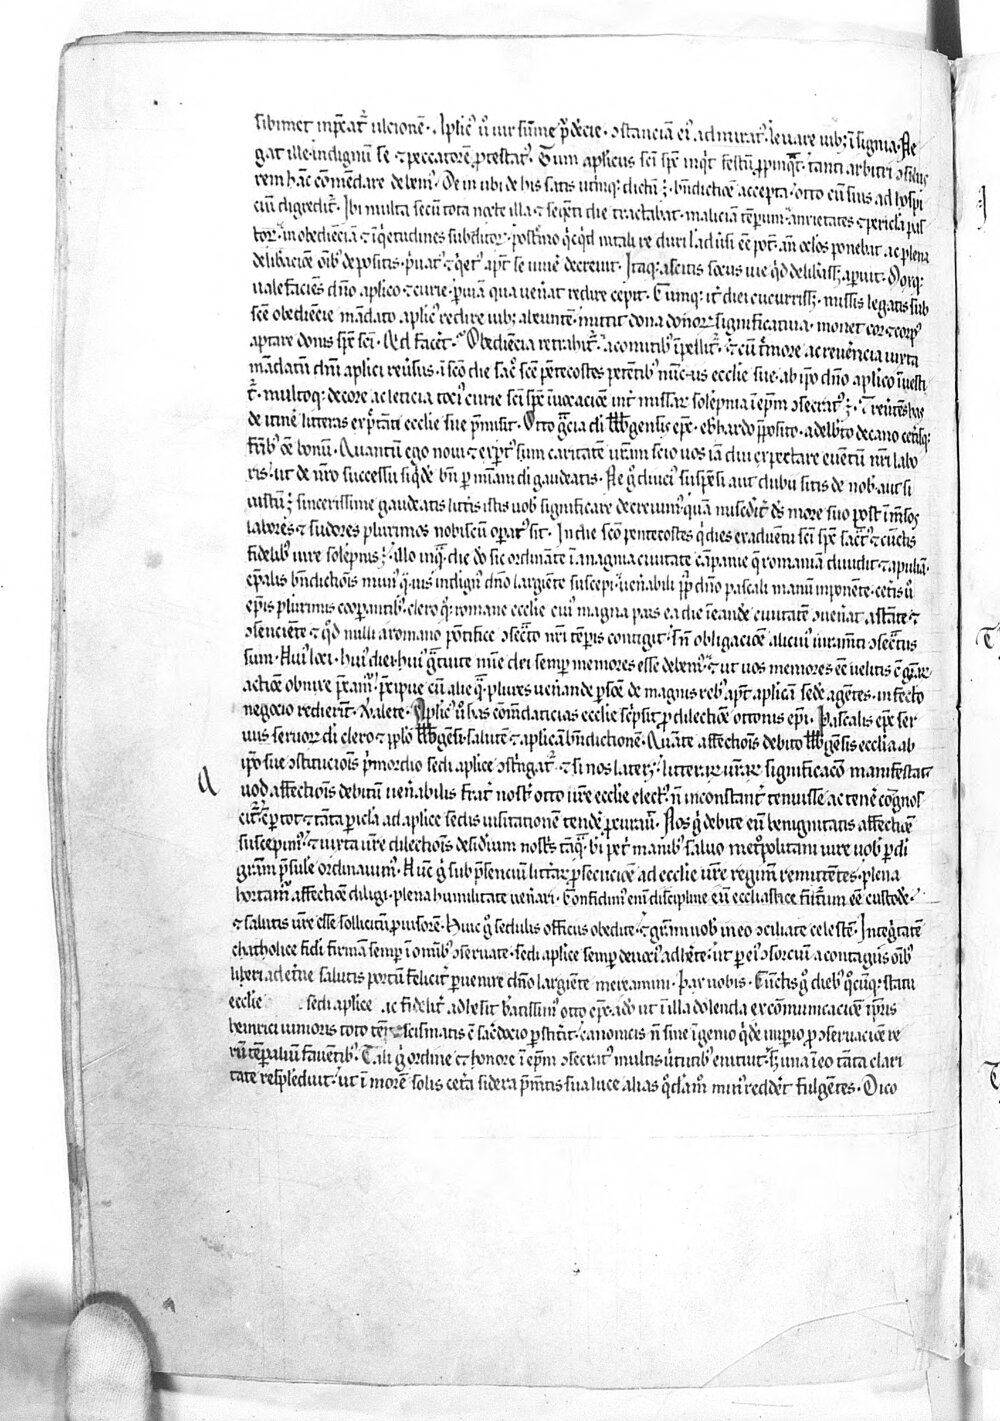 sibimet inpecat᷑ ulcionē. Aplic᷒ ů uir sūme p̄decie. ꝯstanciam ei᷒ admirat᷒. leuare iub; ī signia. Ne
gat ille. indignū se ⁊ peccatorē ꝓtestat᷒. Tum aplicus sc̄i sp̄c inq͛t festū ꝓpinq͛t. tanti arbitri ꝯsiliis
rem hāc cōm̄dare debem᷒. De in ubi de his satis utriq; dictū ē. bn̄dictiōe accepta. otto cū suis ad hospi
cium digredit᷑. Ibi multa secū tota nocte illa ⁊ seq̄nti die tractabat. maliciā tēporum. anxietates ⁊ pericla pas
tor᷒. inobediēciā ⁊ īq̇etudines subditor᷒. postᷓmo q̇cq̇d in tali re duri ł adūsi eē pot᷑. an̄ oclos ponebat. ac plena
delibaciōe om̄ib᷒ depositis. ṗuat᷒ ⁊ q̇et᷒ apt᷑ se uiuē decreuit. Itaq; ascitis sociis uie q̇d delibass; aperuit. Dorq;
uale faciēs dn̄o aplico ⁊ curie. p uiam qua uen̄at redire cepit. Cumq; it᷑ diei cucurriss;. missis legatis sub
scē obediēcie mādato aplic᷒ redire iub;. abeuntē. mittit dona donoꝝ significatiua. monet cor ⁊ corp᷒
aptare donis sp̄c sc̄i. Qd facēt. Obediēcia retrahit᷑. a comitib᷒ īpellit᷑. ⁊ cū t̄more ac reuēncia iuxta
mādatū dn̄i aplici reuersus. ī sc̄o die sac͛ scē pentecostes petētib᷒ nūc̄us ecclie sue. ab ip̄o dn̄o aplico īuesti
t᷑. multoq; decore ac leticia toci᷒ curie sc̄i sp̄c īuocaciōe int᷑ missar solēpnia ī ep̄m ꝯsecrat᷒ ē. T reuētēs has
de itinē litteras exp̄ctāti ecclie sue p̄misit. Otto gr̄cia di bbbgensis epc. ebhardo p̄posito. adelbto decano cet̄isq;
frib᷒ oē bonum. Quantum ego noui ⁊ exp̄t᷒ sum caritatē ur̄am scio uos iā diu expectare euentū nr̄i labo
ris. ut de nr̄o successu siq̇de bn̄ p m̄iam di gaudeatis. Ne g͛ diuci᷒ suspēsi aut dubii sitis de nob᷒. aut si
iustū ē sincerissime gaudeatis litt̄is istis uob᷒ significare decreuim᷒. quā misēdit᷑ ds̄ more suo post īm̄sos
labores ⁊ sudores plurimos nobiscū opat᷒ sit. In die sc̄o pentecostes q̇ dies ex aduentu sc̄i sp̄c sac͛t᷒ ⁊ cūctis
fidelib᷒ iure solēpnis ē. illo inq͛ die do sic ordināte ī anagnia ciuitate cāpanie q̄ romaniā diuidit ⁊ apuliā.
ep̄alis bn̄dictiōis mun᷒ q̇uis indign᷒ dn̄o largiente suscepi. uen̄abili p̄p̄ dn̄o pascali manū inponente. cet̄is ů
ep̄is plurimis coopantib᷒. clero q̇q; romane ecclie cui᷒ magna pars ea die ī eandē ciuitatē ꝯuen̄at astāte ⁊
ꝯsenciēte ⁊ q̇d nulli a romano pontifice ꝯsec͛to nr̄i tēpis contigit. sn̄ obligaciōe alicui᷒ iuram̄ti ꝯsec͛tus
sum. Hui᷒ loci. hui᷒ diei. hui᷒ gr̄tuite mīe dei semp memores esse debem᷒. ⁊ ut uos memores eē uelitis c̄ gr̄aꝝ
actiōe obnixe p̄cam᷒. p̄cipue cū alie q͛ plures uen̄ande psōe de magnis reb᷒ apt̄ aplicā sedē agētes. infecto
negocio redierīt. Valete. Aplic᷒ ů has cōm̄daticias ecclie sc̄psit ꝓ dilectiōe ottonis ep̄i. Pascalis epc ser
uus seruoꝝ di clero ⁊ pp̄lo bbbgēsi. salutē ⁊ aplicā bn̄dictionē. Quāte affectiōis debito bbbgēsis ecclia ab
ip̄o sue ꝯstituciōis ṗmordio sedi aplice ꝯst̄gat᷑. ⁊ si nos later;. litteraꝝ ur̄aꝝ significaco manifestat
uod affectiōis debitū uen̄abilis frat᷑ nost᷑ otto ur̄e ecclie elect᷒ n̄ inconstant᷑ tenuisse ac tenē cognos
cit᷑. cū p tot ⁊ tāta pericla ad aplice sedis uisitationē tendē ꝓcurau᷑. Nos g͛ debite eū benignitatis affectiōe
suscepim᷒. ⁊ iuxta ur̄e dilectiōis desidiū nost͛s tāq͛ bi pet᷑ manib᷒. saluo metᵒpolitani iure uob᷒ p di
gr̄am p̄sule ordinauim᷒. Hūc g͛ sub p̄sencīū littaꝝ ꝓsecuciōe ad ecclie ur̄e regim̄ remittētes. plena
hortam᷒ affectiōe diligi. plena humilitate uen̄ari. Confidim᷒ eni discipline eū ecclīastice firm̄um eē custodē.
⁊ salutis ur̄e esse sollicitū ꝓuisorē. Huic g͛ sedulis officiis obedite. ⁊ gr̄am uob᷒ in eo ꝯciliate celestē. Integ͛tatē
chatholice fidei firmam semp ī om̄ib᷒ ꝯseruate. sedi aplice semp deuoci᷒ adh̄ete. ut p ei᷒ ꝯsorciū a contagiis om̄ib᷒
liberi ad et̄ne salutis portū felicit᷑ puenire dn̄o largiēte mereamini. Pax uobis. Cūctis g͛ dieb᷒ q̇cūq; statu
ecclie sedi aplice ac fidelit᷑ adhesit bātissim᷒ otto epc. adō ut ī illa dolenda excōmunicaciōe īp̄ris
heinrici iunioris toto tēp̄e scismatis c̄ sac͛docio pstit᷑it. canonicis n̄ sine īgenio q̇de īp̄io ꝓ ꝯseruaciōe re
rū tēpaliū fauentib᷒. Tali g͛ ordine ⁊ honore ī ep̄m ꝯsecrat᷒ multis uirtutib᷒ enituit. Huna ī eo tāta clari
tate resplēduit. ut ī morē solis cet̄a sidera p̄m̄tis sua luce alias q̇dam᷒ min᷒ reddēt fulgētes. Dico